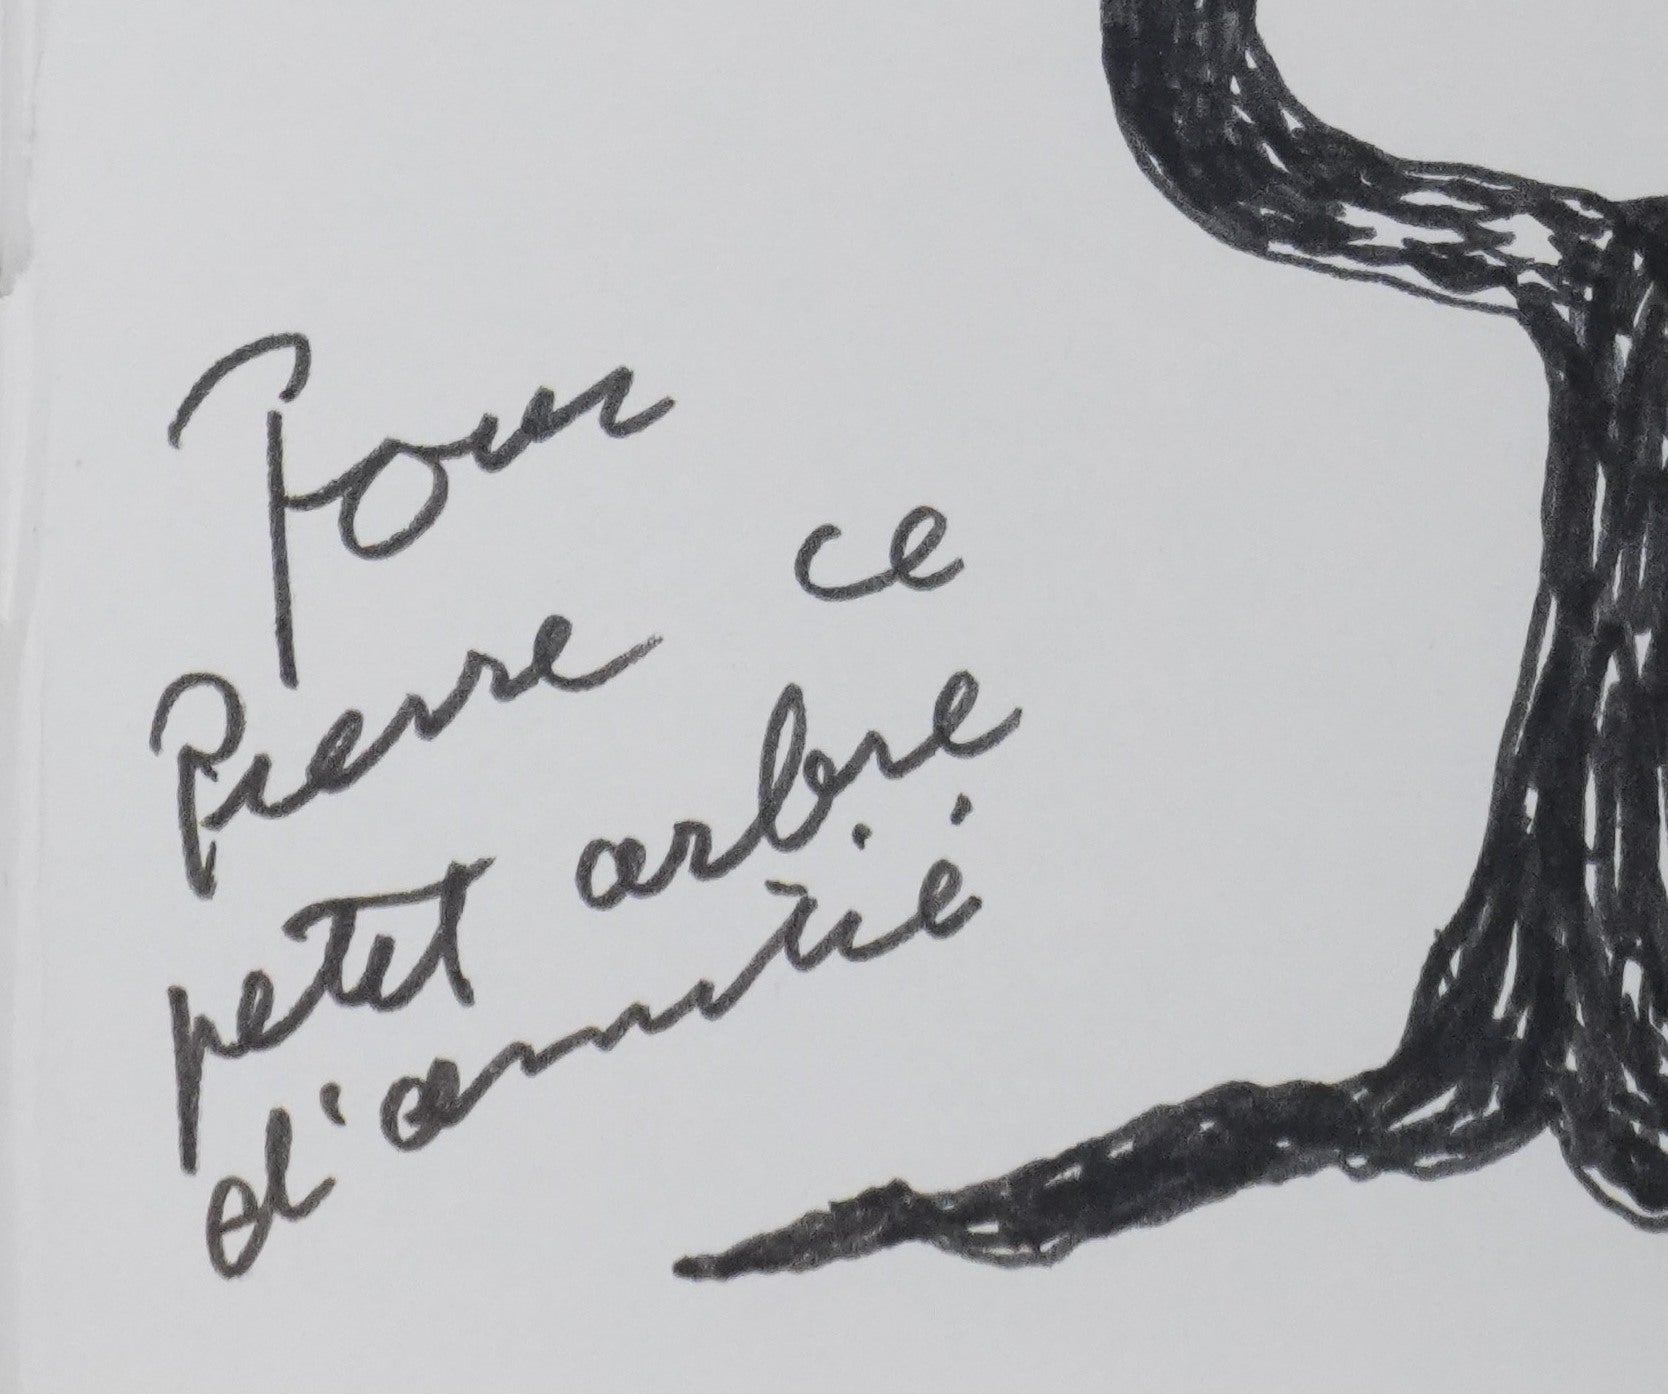 Pour
Pierre ce
petit arbre
d'amitié